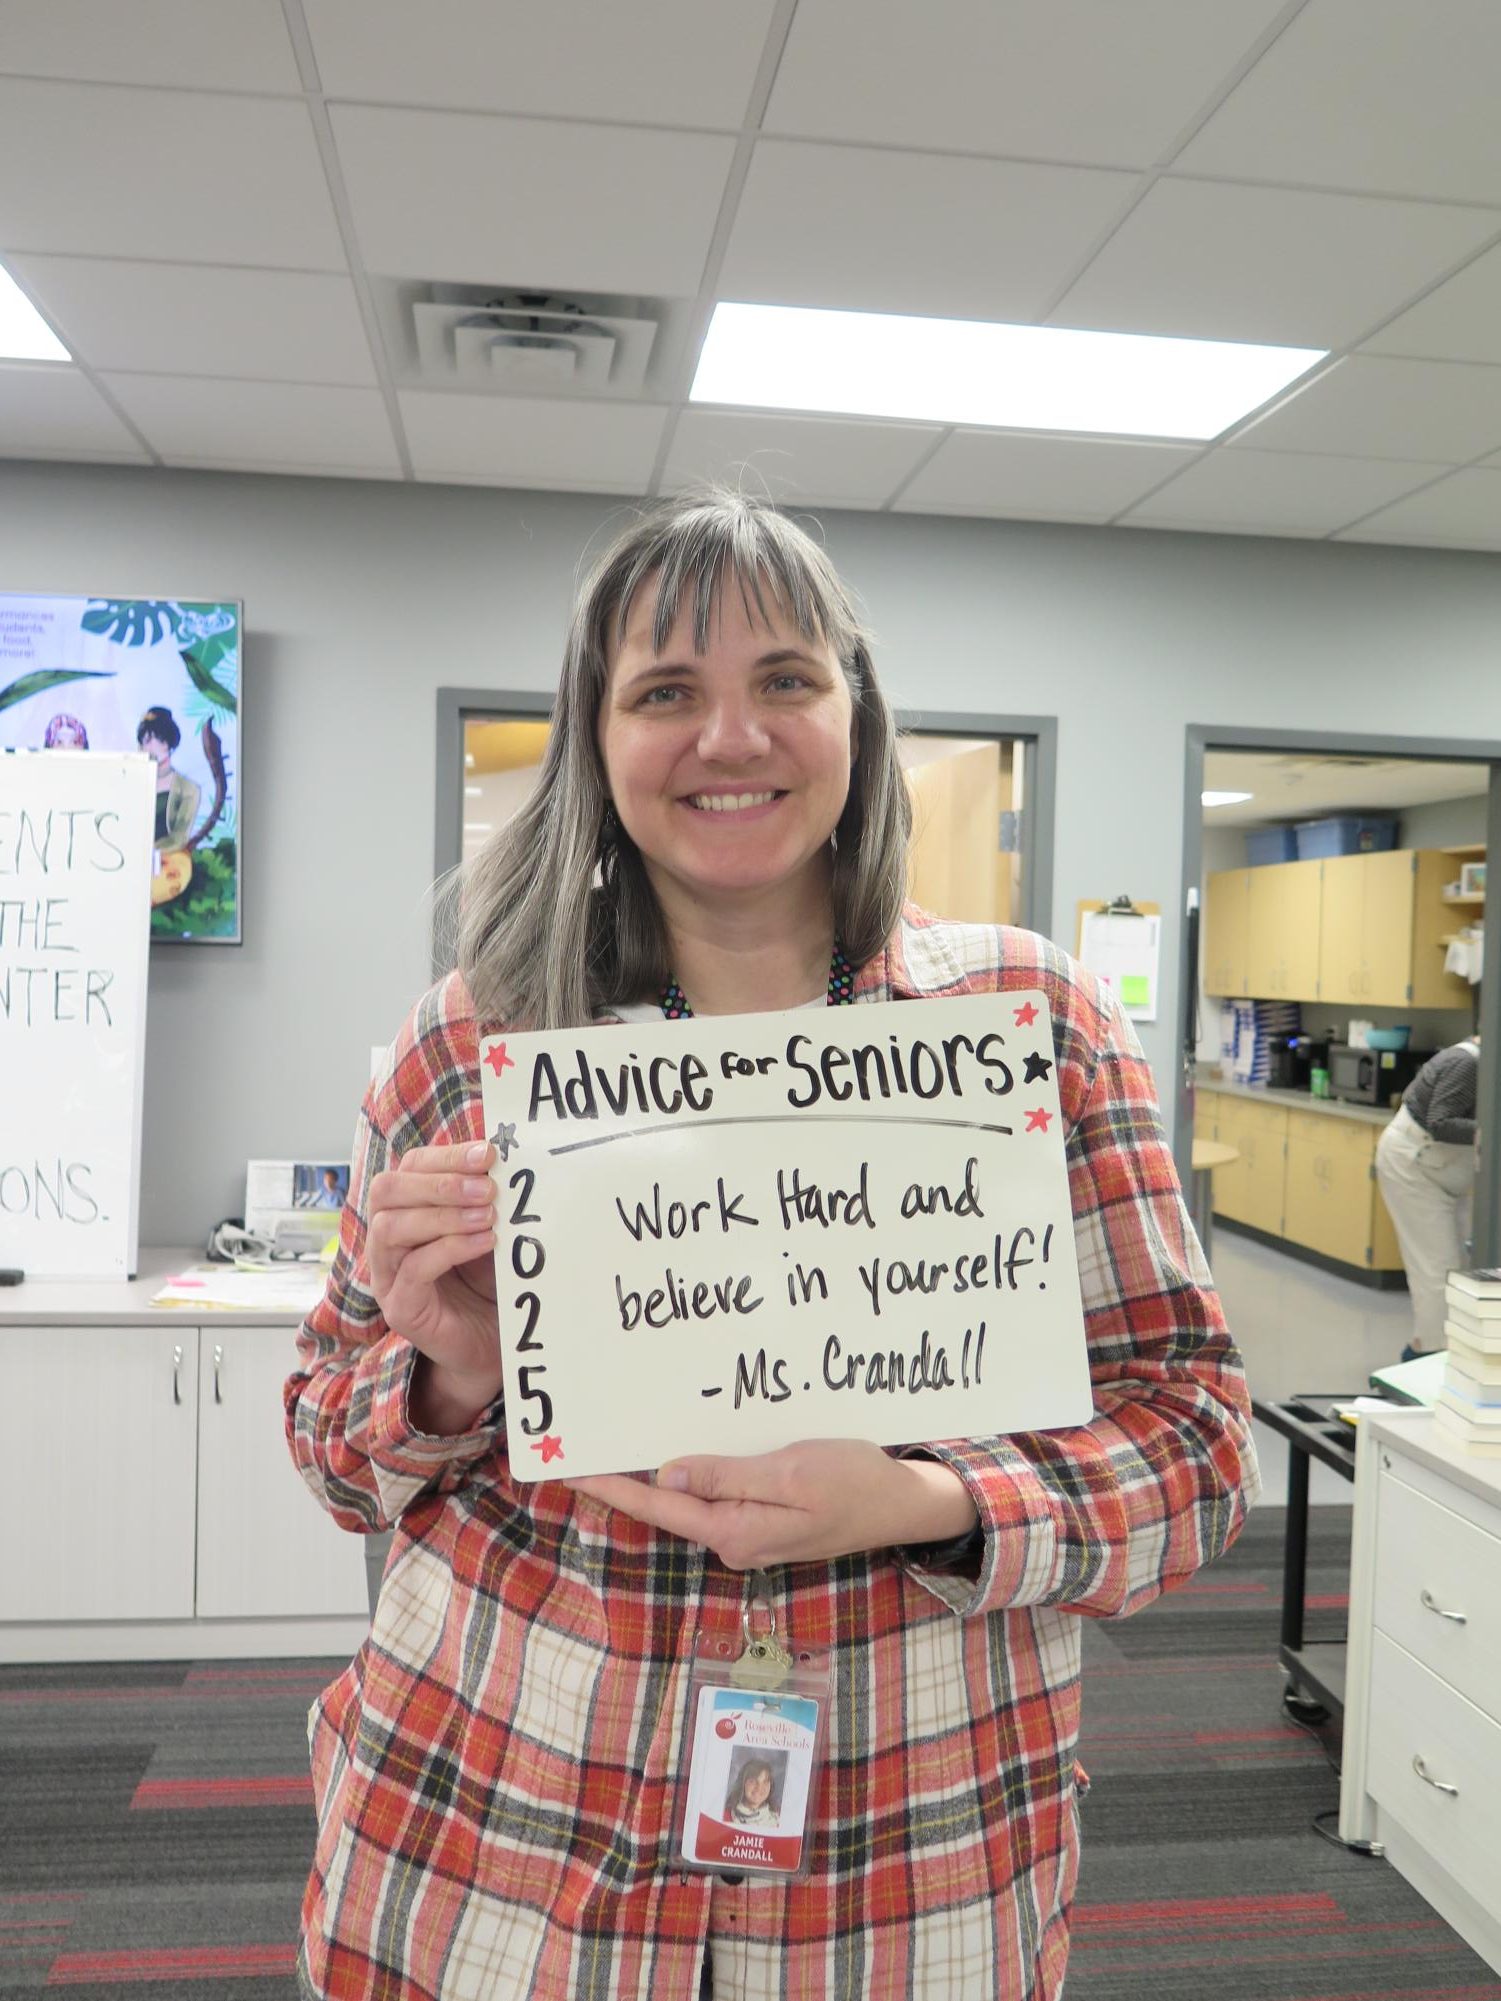 rmances
udents,
food,
more!
ENTS
THE
NTER
ONS.
Advice for Seniors
2025
Work Hard and
believe in yourself!
- Ms. Crandall
Roseville
Area Schools
JAMIE
CRANDALL